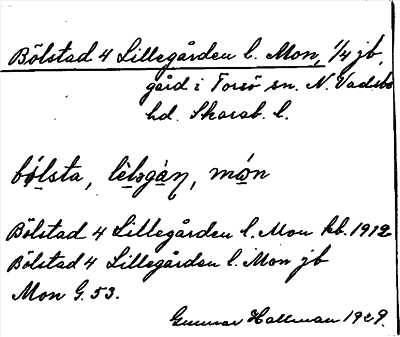 Bölstad 4 Lillegården l. Mon, 1/4 jb,
gård i Torsö sn. N. Vadsbo
hd. Skarab. l.
bólsta, lèlsgàn, món
Bölstad 4 Lillegården l. Mon kb. 1912
Bölstad 4 Lillegården l. Mon jb
Mon G. 53.
Gunnar Hallman 1929.